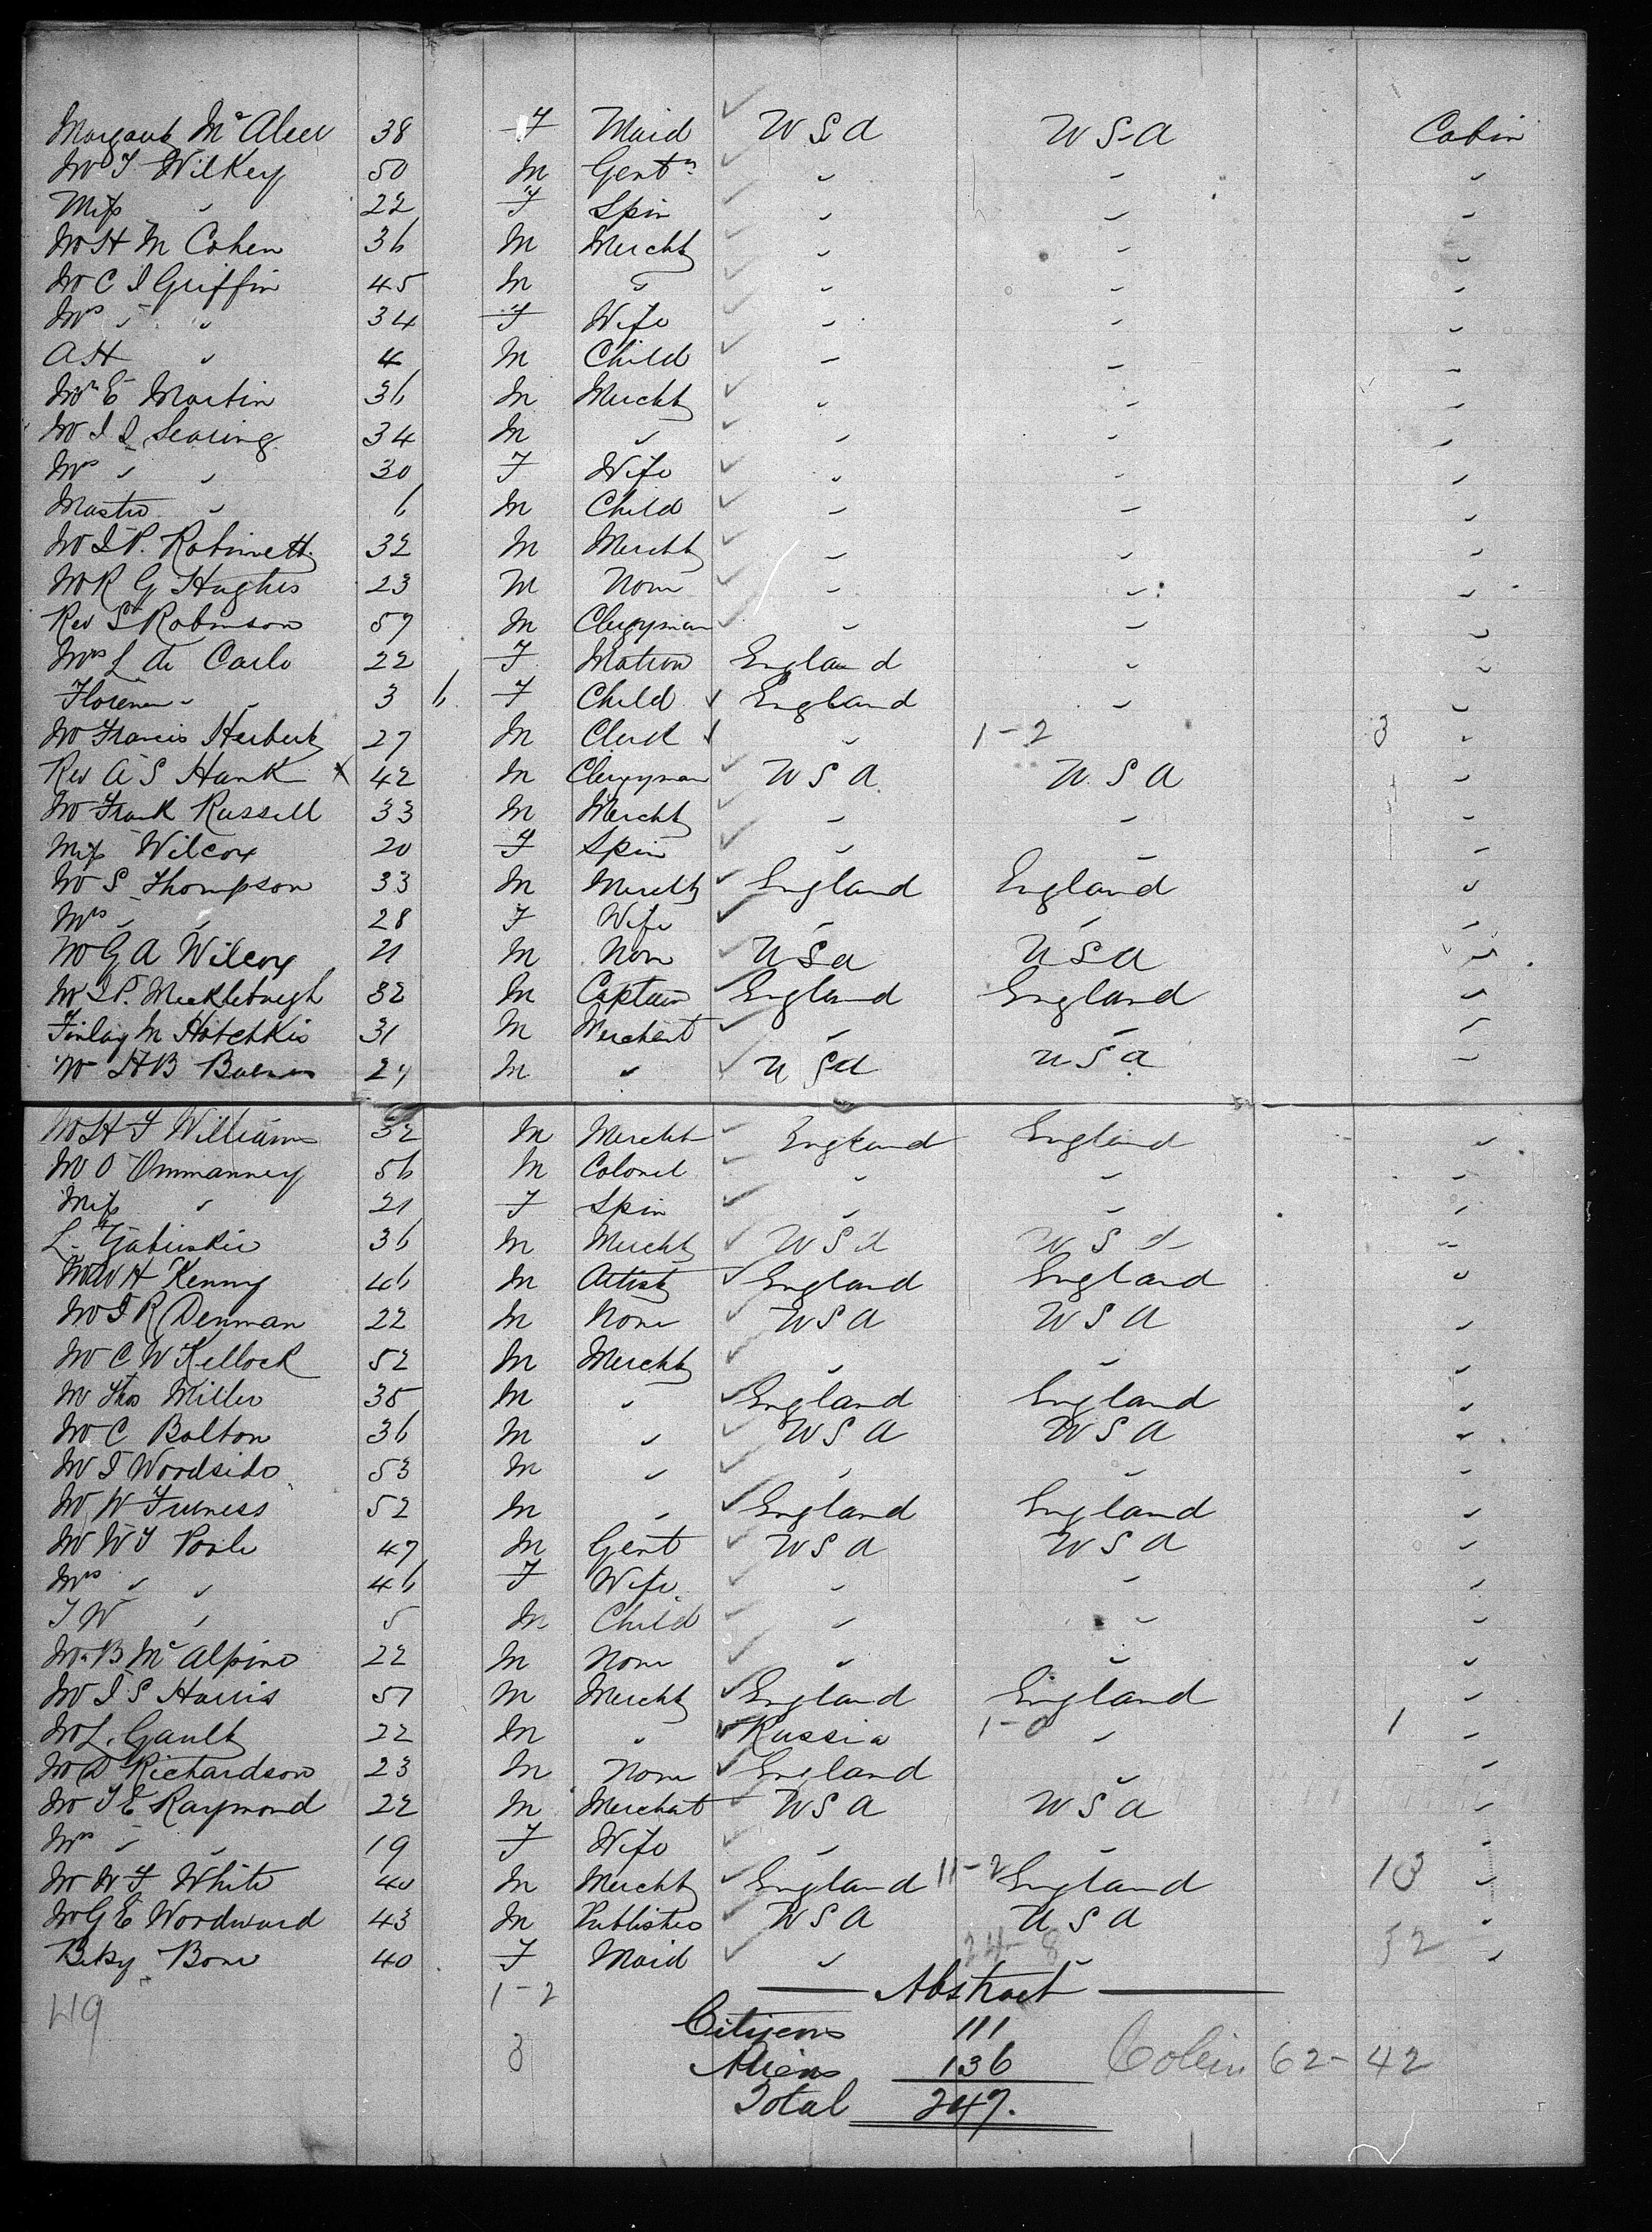 Margaret Mc Aleer 38 F Maid U S A U S A Cabin
Mr T Wilkey 50 M Gentn " " "
Miss " 22 F Spin " " "
Mr H M Cohen 36 M Mercht " " "
Mr C I Griffin 45 M " " " "
Mrs " " 34 F Wife " " "
A H " 4 M Child " " "
Mr E Martin 36 M Mercht " " "
Mr I S Searing 34 M " " " "
Mrs " " 30 F Wife " " "
Master " 6 M Child " " "
Mr I P. Robinett 32 M Mercht " " "
Mr R G Hughes 23 M None " " "
Rev S Robinson 57 M Clergyman " " "
Mrs L de Carlo 22 F Matron England " "
Florence " " 3 6 F Child England " "
Mr Francis Herbert 27 M Clerk " 1-2 3 "
Rev A S Hank x 42 M Clergyman U S A U. S A "
Mr Frank Russell 33 M Mercht " " "
Miss Wilcox 20 F Spin " " "
Mr S Thompson 33 M Mercht England England "
Mrs " " 28 F Wife " " "
Mr G A Wilcox 21 M None U S A U S A "
Mr I P. Mecklebugh 32 M Captain England England "
Finlay M Hotchkis 31 M Merchant " " "
Mr H B 24 M " U S A U S A "
Mr H J Williams 32 M Mercht England England "
Mr O Ommanney 56 M Colonel " " "
Miss " 21 F Spin " " "
L. 36 M Mercht U S A U S A "
Mr W H Kenny 46 M Artist England England "
Mr I R Denman 22 M None U S A U S A "
Mr C W Kellock 52 M Mercht " " "
Mr Thos Miller 35 M " England England "
Mr C Bolton 36 M " U S A U S A "
Mr I Woodside 53 M " " " "
Mr W Furness 52 M " England England "
Mr W T Poole 47 M Gent U S A U S A "
Mrs " " 46 F Wife " " "
T W " 5 M Child " " "
Mr B Mc Alpine 22 M None " " "
Mr I S Harris 51 M Mercht England England "
Mr L. Gault 22 M " Russia 1-0 " 1 "
Mr D Richardson 23 M None England " "
Mr T E Raymond 22 M Merchat U S A U S A "
Mrs " " 19 F Wife " " "
Mr W F White 40 M Mercht England 11-2 England 13 "
Mr G E Woodward 43 M Publisher U S A U S A "
Betsy Bone 40 F Maid " 24-8 " 32 "
1-2 Abstract
49 Citizens 111
3 Aliens 136 Cabin 62-42
Total 247.